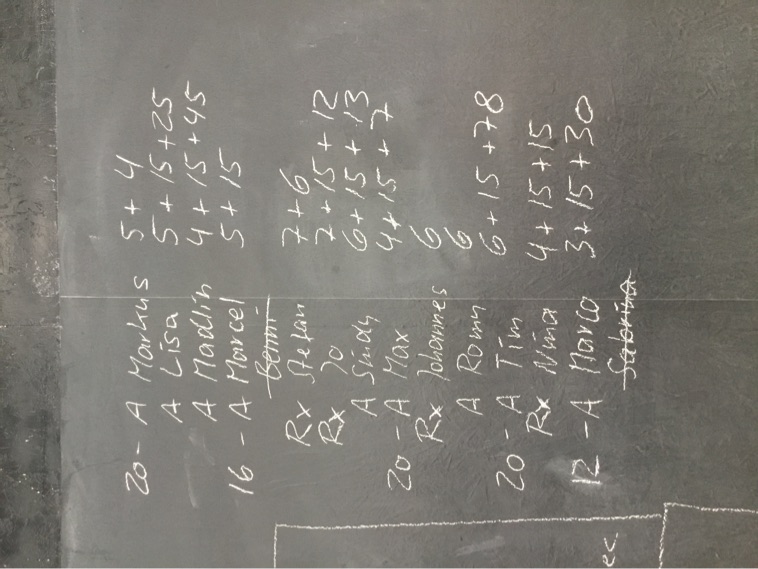 20- A Markus 5+4
A Lisa 5+15+25
A Madlin 4+15+45
16 - A Marcel 5+15
Benni
Rx Stefan 7+6
Rx Jo 2+15+12
A Sindy 6+15+13
20 - A Max 4+15+7
Rx Johannes 6
A Romy 6
20 - A Tim 6+15+78
Rx Nina 4+15+15
12 - A Marco 3+15+30
Sabrina
ec